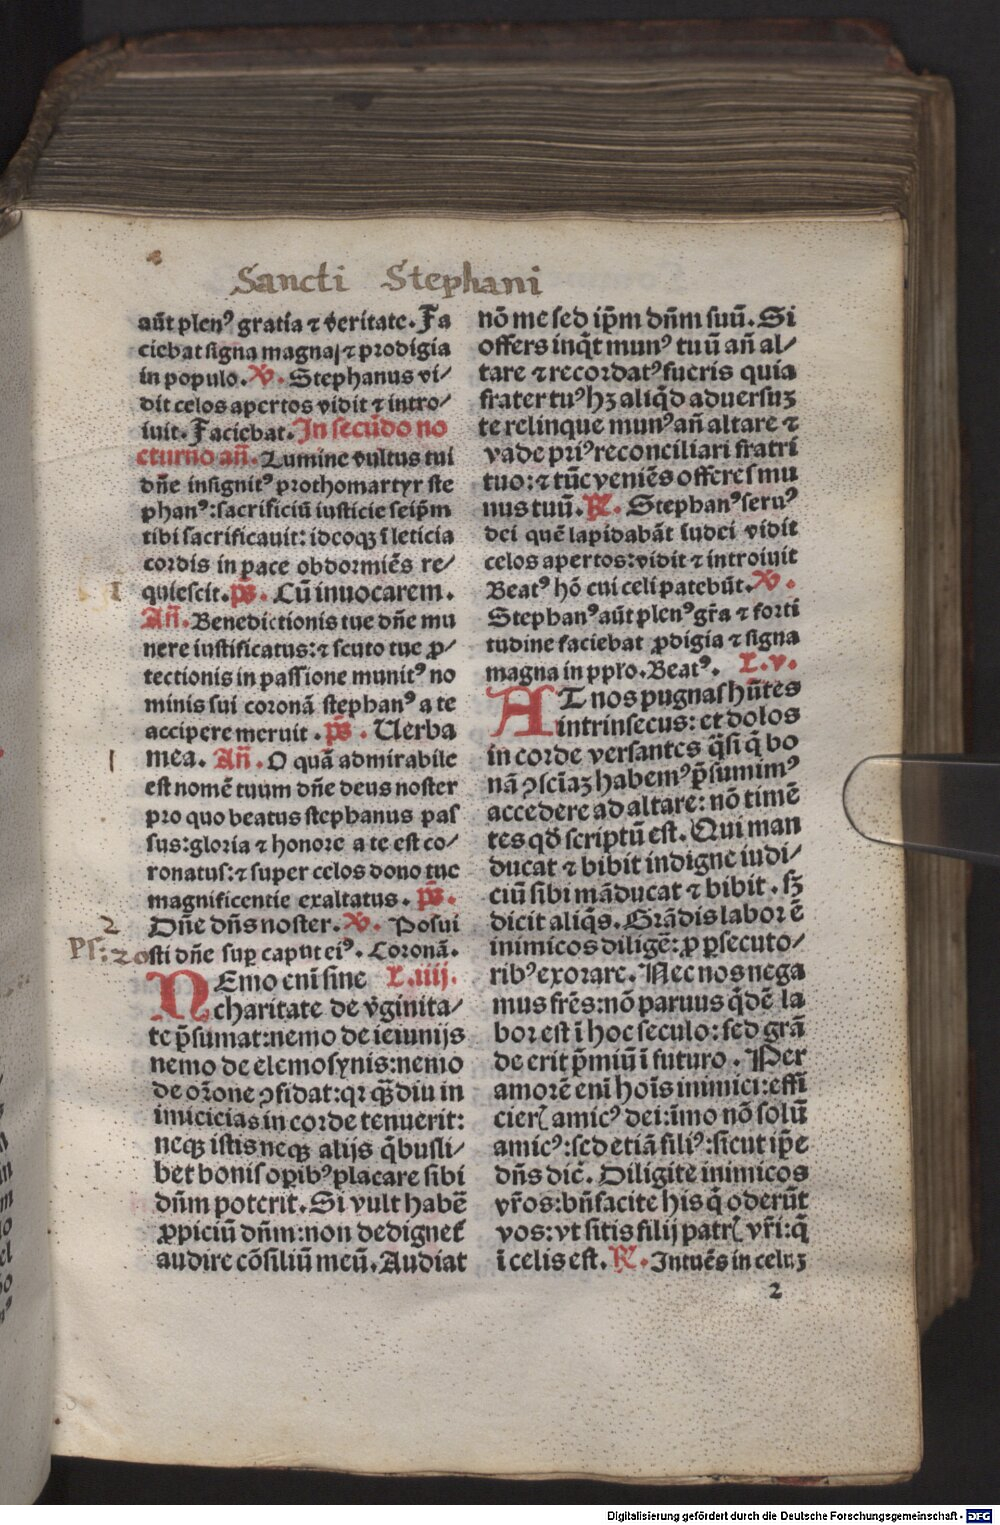 Sancti Stephani
aūt plenꝰ gratia ⁊ veritate. Fa
ciebat signa magna ⁊ prodigia
in populo. V. Stephanus vi/
dit celos apertos vidit ⁊ intro/
iuit. Faciebat. In secūdo no
cturno añ. Lumine vultus tui
dñe insignitꝰ prothomartyr ste
phanꝰ: sacrificiū iusticie seip̄m
tibi sacrificauit: idcoqꝫ ī leticia
cordis in pace obdormiēs re/
quiescit. p̄s. Cū inuocarem.
Añ. Benedictionis tue dñe mu
nere iustificatus: ⁊ scuto tue ꝓ/
tectionis in passione munitꝰ no
minis sui coronā stephanꝰ a te
accipere meruit. p̄s. Uerba
mea. Añ. O quā admirabile
est nomē tuum dñe deus noster
pro quo beatus stephanus pas
sus: gloria ⁊ honore a te est co/
ronatus: ⁊ super celos dono tue
magnificentie exaltatus. p̄s.
Dñe dñs noster. V. Posui
sti dñe suꝑ caput eiꝰ. Coronā.
NEmo enī sine L.iiij.
charitate de v̄ginita/
te p̄sumat: nemo de ieiunijs
nemo de elemosynis: nemo
de or̄one ꝯfidat: qr qm̄diu in
imicicias in corde tenuerit:
neqꝫ istis neqꝫ alijs q̄busli/
bet bonis oꝑibꝰ placare sibi
dñm poterit. Si vult habē
ꝓpiciū dñm: non dedignet̄
audire cōsiliū meū. Audiat
1
1
2
Ps: 20
nō me sed ip̄m dñm suū. Si
offers inq̄t munꝰ tuū añ al/
tare ⁊ recordatꝰ fueris quia
frater tuꝰ hꝫ aliq̄d aduersuꝫ
te relinque munꝰ añ altare ⁊
vade priꝰ reconciliari fratri
tuo: ⁊ tūc veniēs offeres mu
nus tuū. R. Stephanꝰ seruꝰ
dei quē lapidabāt iudei vidit
celos apertos: vidit ⁊ introiuit
Beatꝰ hō cui celi patebūt. V.
Stephanꝰ aūt plenꝰ gr̄a ⁊ forti
tudine faciebat ꝓdigia ⁊ signa
magna in ppło. Beatꝰ. L.v.
AT nos pugnas hn̄tes
intrinsecus: et dolos
in corde versantes q̄si q̄ bo
nā ꝯscīaꝫ habemꝰ p̄sumimꝰ
accedere ad altare: nō timē
tes qd̄ scriptū est. Qui man
ducat ⁊ bibit indigne iudi/
ciū sibi māducat ⁊ bibit. sꝫ
dicit aliq̄s. Grādis labor ē
inimicos diligē: ꝓ ꝑsecuto/
ribꝰ exorare. Nec nos nega
mus fr̄es: nō paruus q̄dē la
bor est ī hoc seculo: sed grā
de erit p̄miū ī futuro. Per
amorē enī hoīs inimici: effi
cieris amicꝰ dei: īmo nō solū
amicꝰ: sed etiā filiꝰ: sicut ip̄e
dñs dic̄. Diligite inimicos
vr̄os: bn̄facite his q̄ oderūt
vos: vt sitis filij patris vr̄i: q̄
ī celis est. R. Intuēs in celuꝫ
2
Digitalisierung gefördert durch die Deutsche Forschungsgemeinschaft - DFG